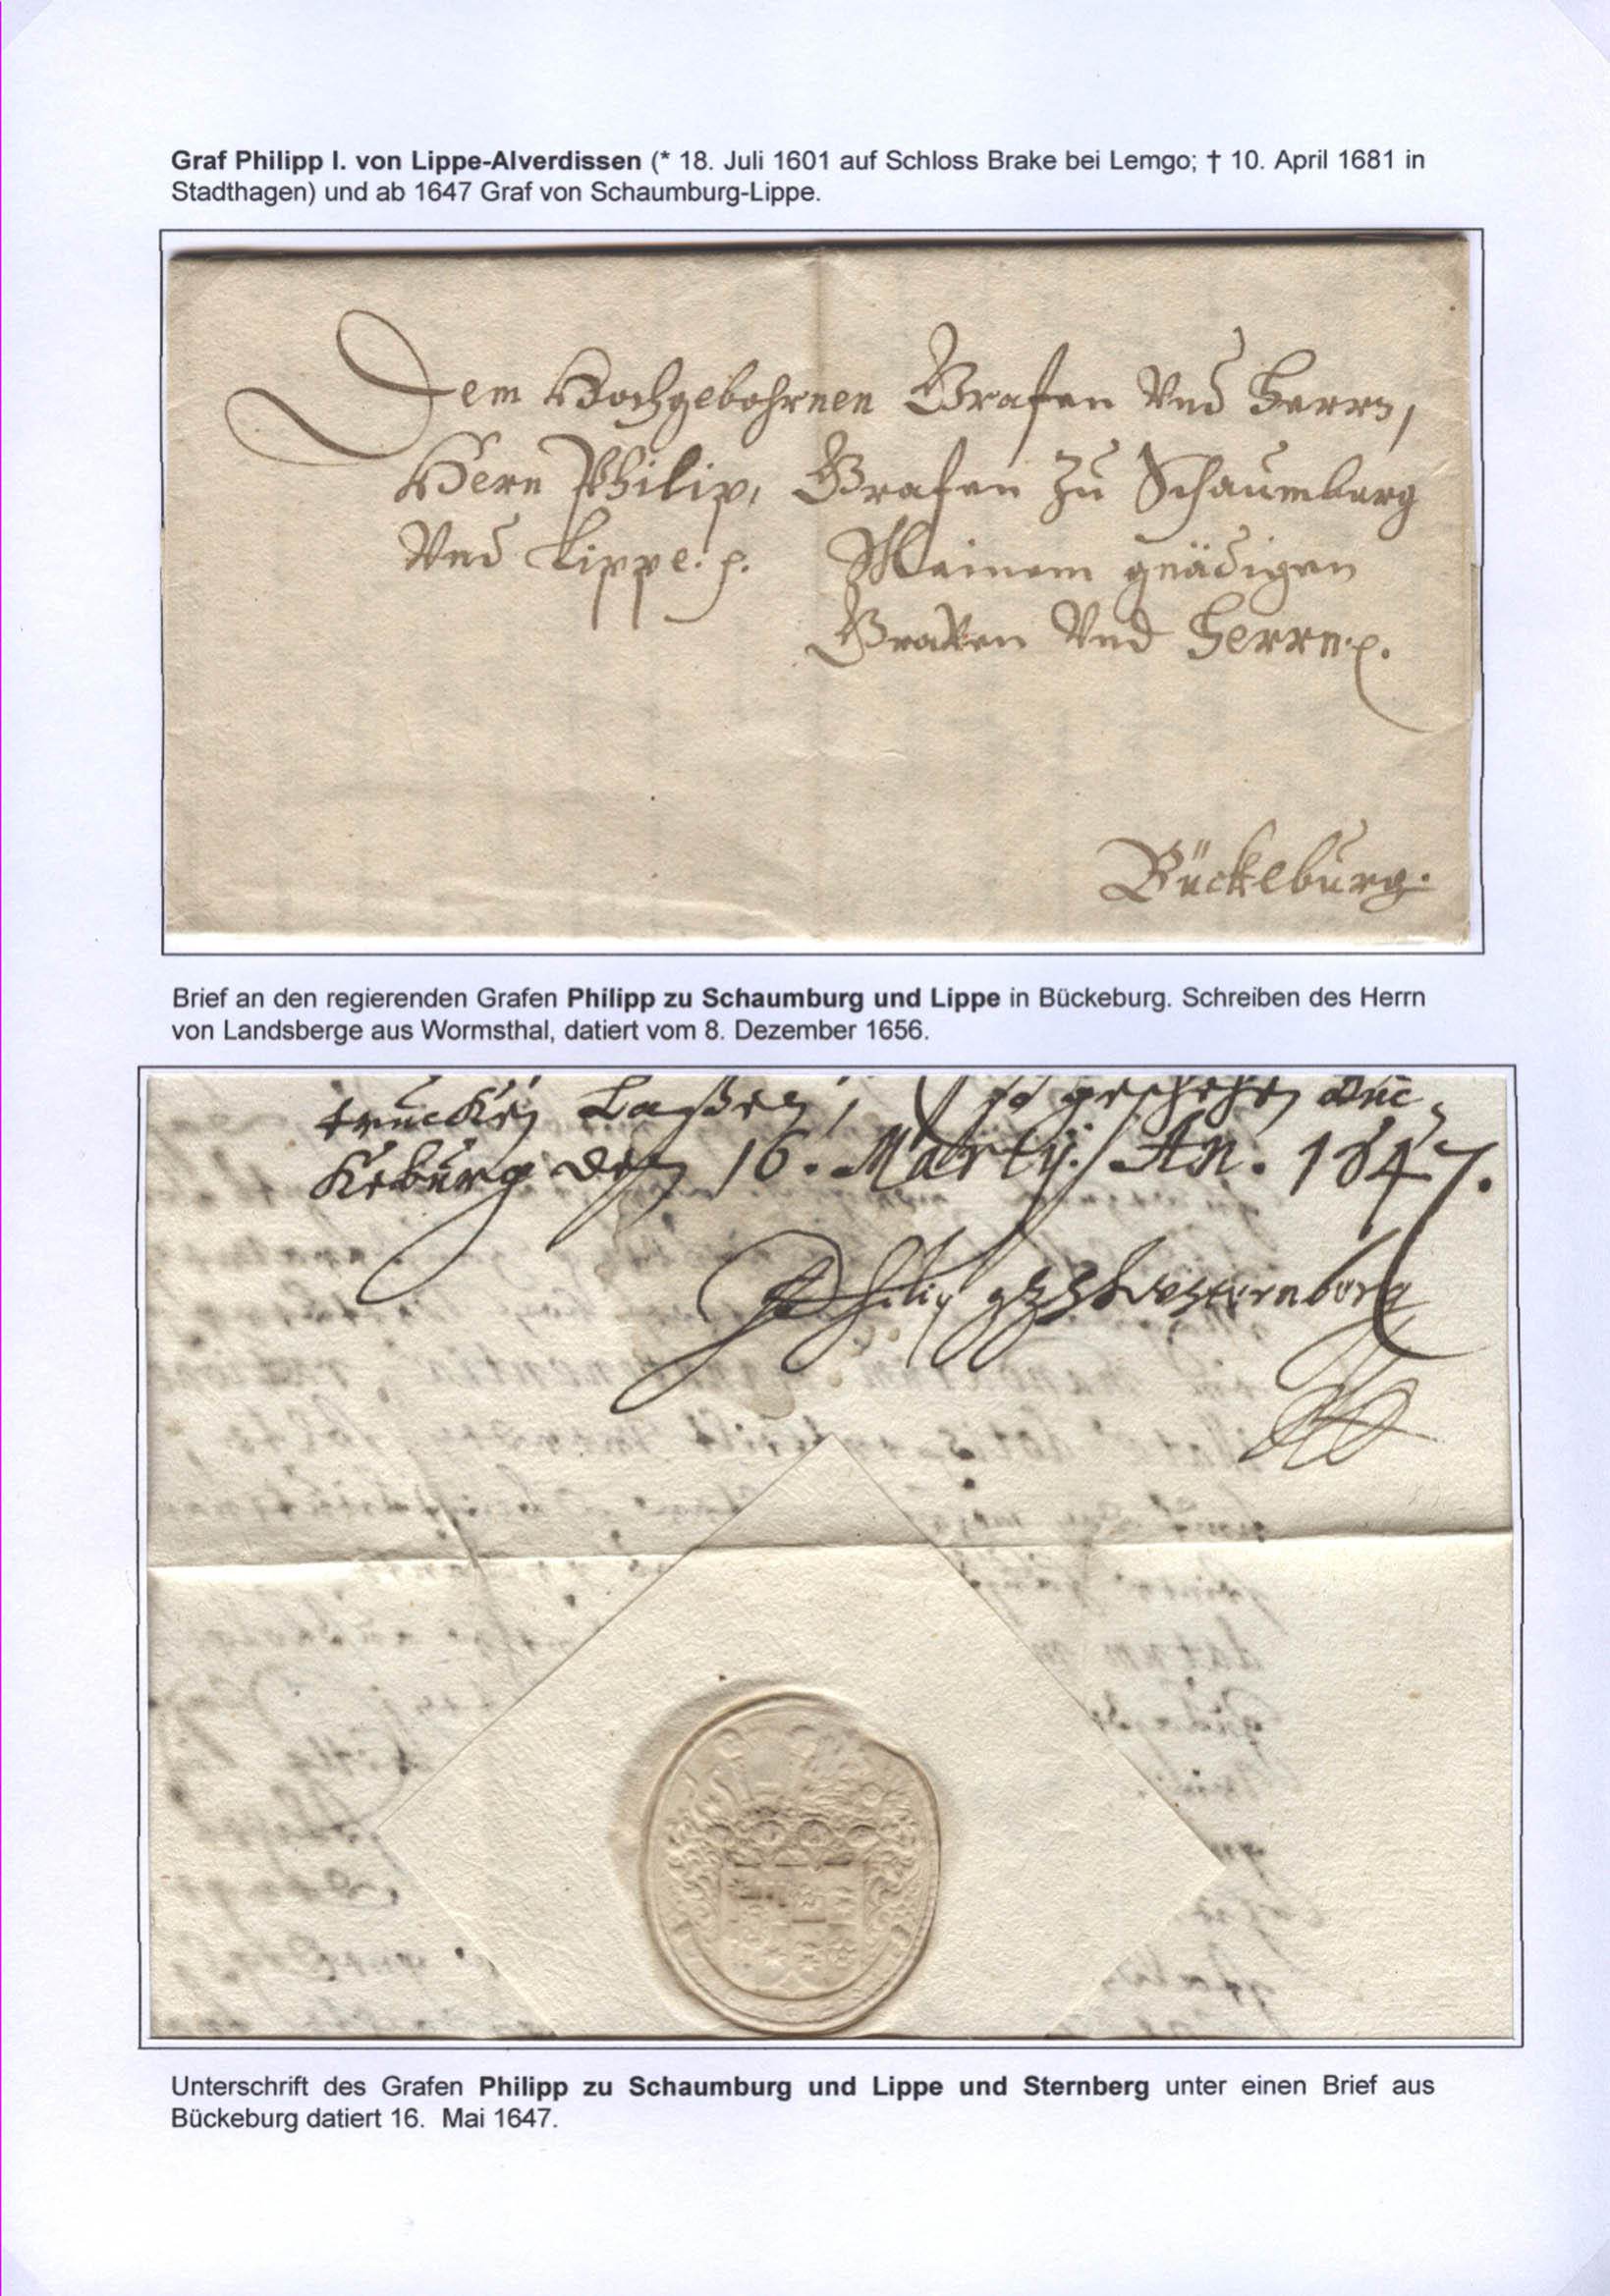 Graf Philipp I. von Lippe-Alverdissen (* 18. Juli 1601 auf Schloss Brake bei Lemgo; † 10. April 1681 in
Stadthagen) und ab 1647 Graf von Schaumburg-Lippe.
Dem Hochgebohrnen Grafen Vnd Herrn,
Hern Philip, Grafen zu Schaumburg
Vnd Lippe. p. Meinem gnädigen
Graven Vnd Herren p.
Bückeburg.
Brief an den regierenden Grafen Philipp zu Schaumburg und Lippe in Bückeburg. Schreiben des Herrn
von Landsberge aus Wormsthal, datiert vom 8. Dezember 1656.
trucken Laßen, So geschehen Büc
keburg den 16. Martij. An. 1647.
Philip
Unterschrift des Grafen Philipp zu Schaumburg und Lippe und Sternberg unter einen Brief aus
Bückeburg datiert 16. Mai 1647.